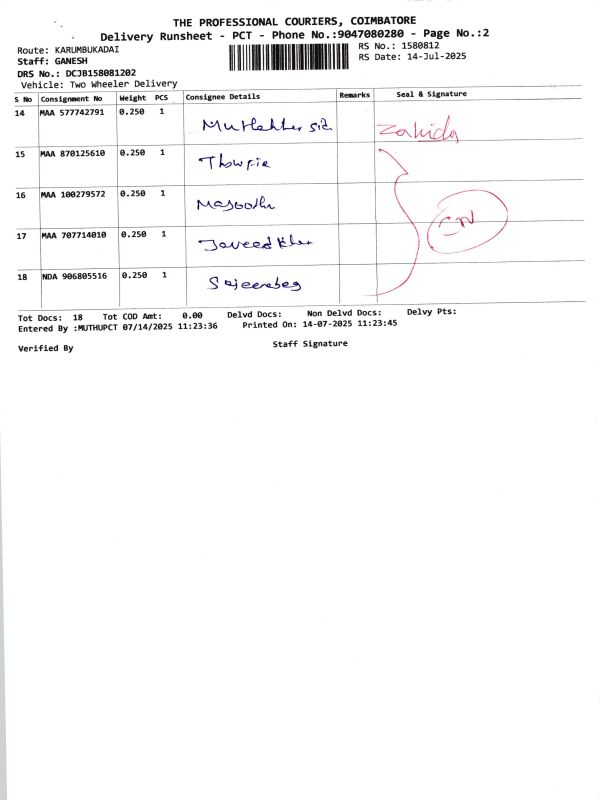 THE PROFESSIONAL COURIERS, COIMBATORE
Delivery Runsheet - PCT - Phone No.:9047080280 - Page No.:2
Route: KARUMBUKADAI
RS No.: 1580812
Staff: GANESH
RS Date: 14-Jul-2025
DRS No.: DCJB158081202
Vehicle: Two Wheeler Delivery
S No Consignment No Weight PCS Consignee Details Remarks Seal & Signature
14 MAA 577742791 0.250 1
Zahida
15 MAA 870125610 0.250 1 Thowfie
16 MAA 100279572 0.250 1 Masoodhu
17 MAA 707714010 0.250 1 Javeed Khan
18 NDA 906805516 0.250 1 Sajeenabeg
Tot Docs: 18 Tot COD Amt: 0.00 Delvd Docs: Non Delvd Docs: Delvy Pts:
Entered By :MUTHUPCT 07/14/2025 11:23:36 Printed On: 14-07-2025 11:23:45
Verified By Staff Signature